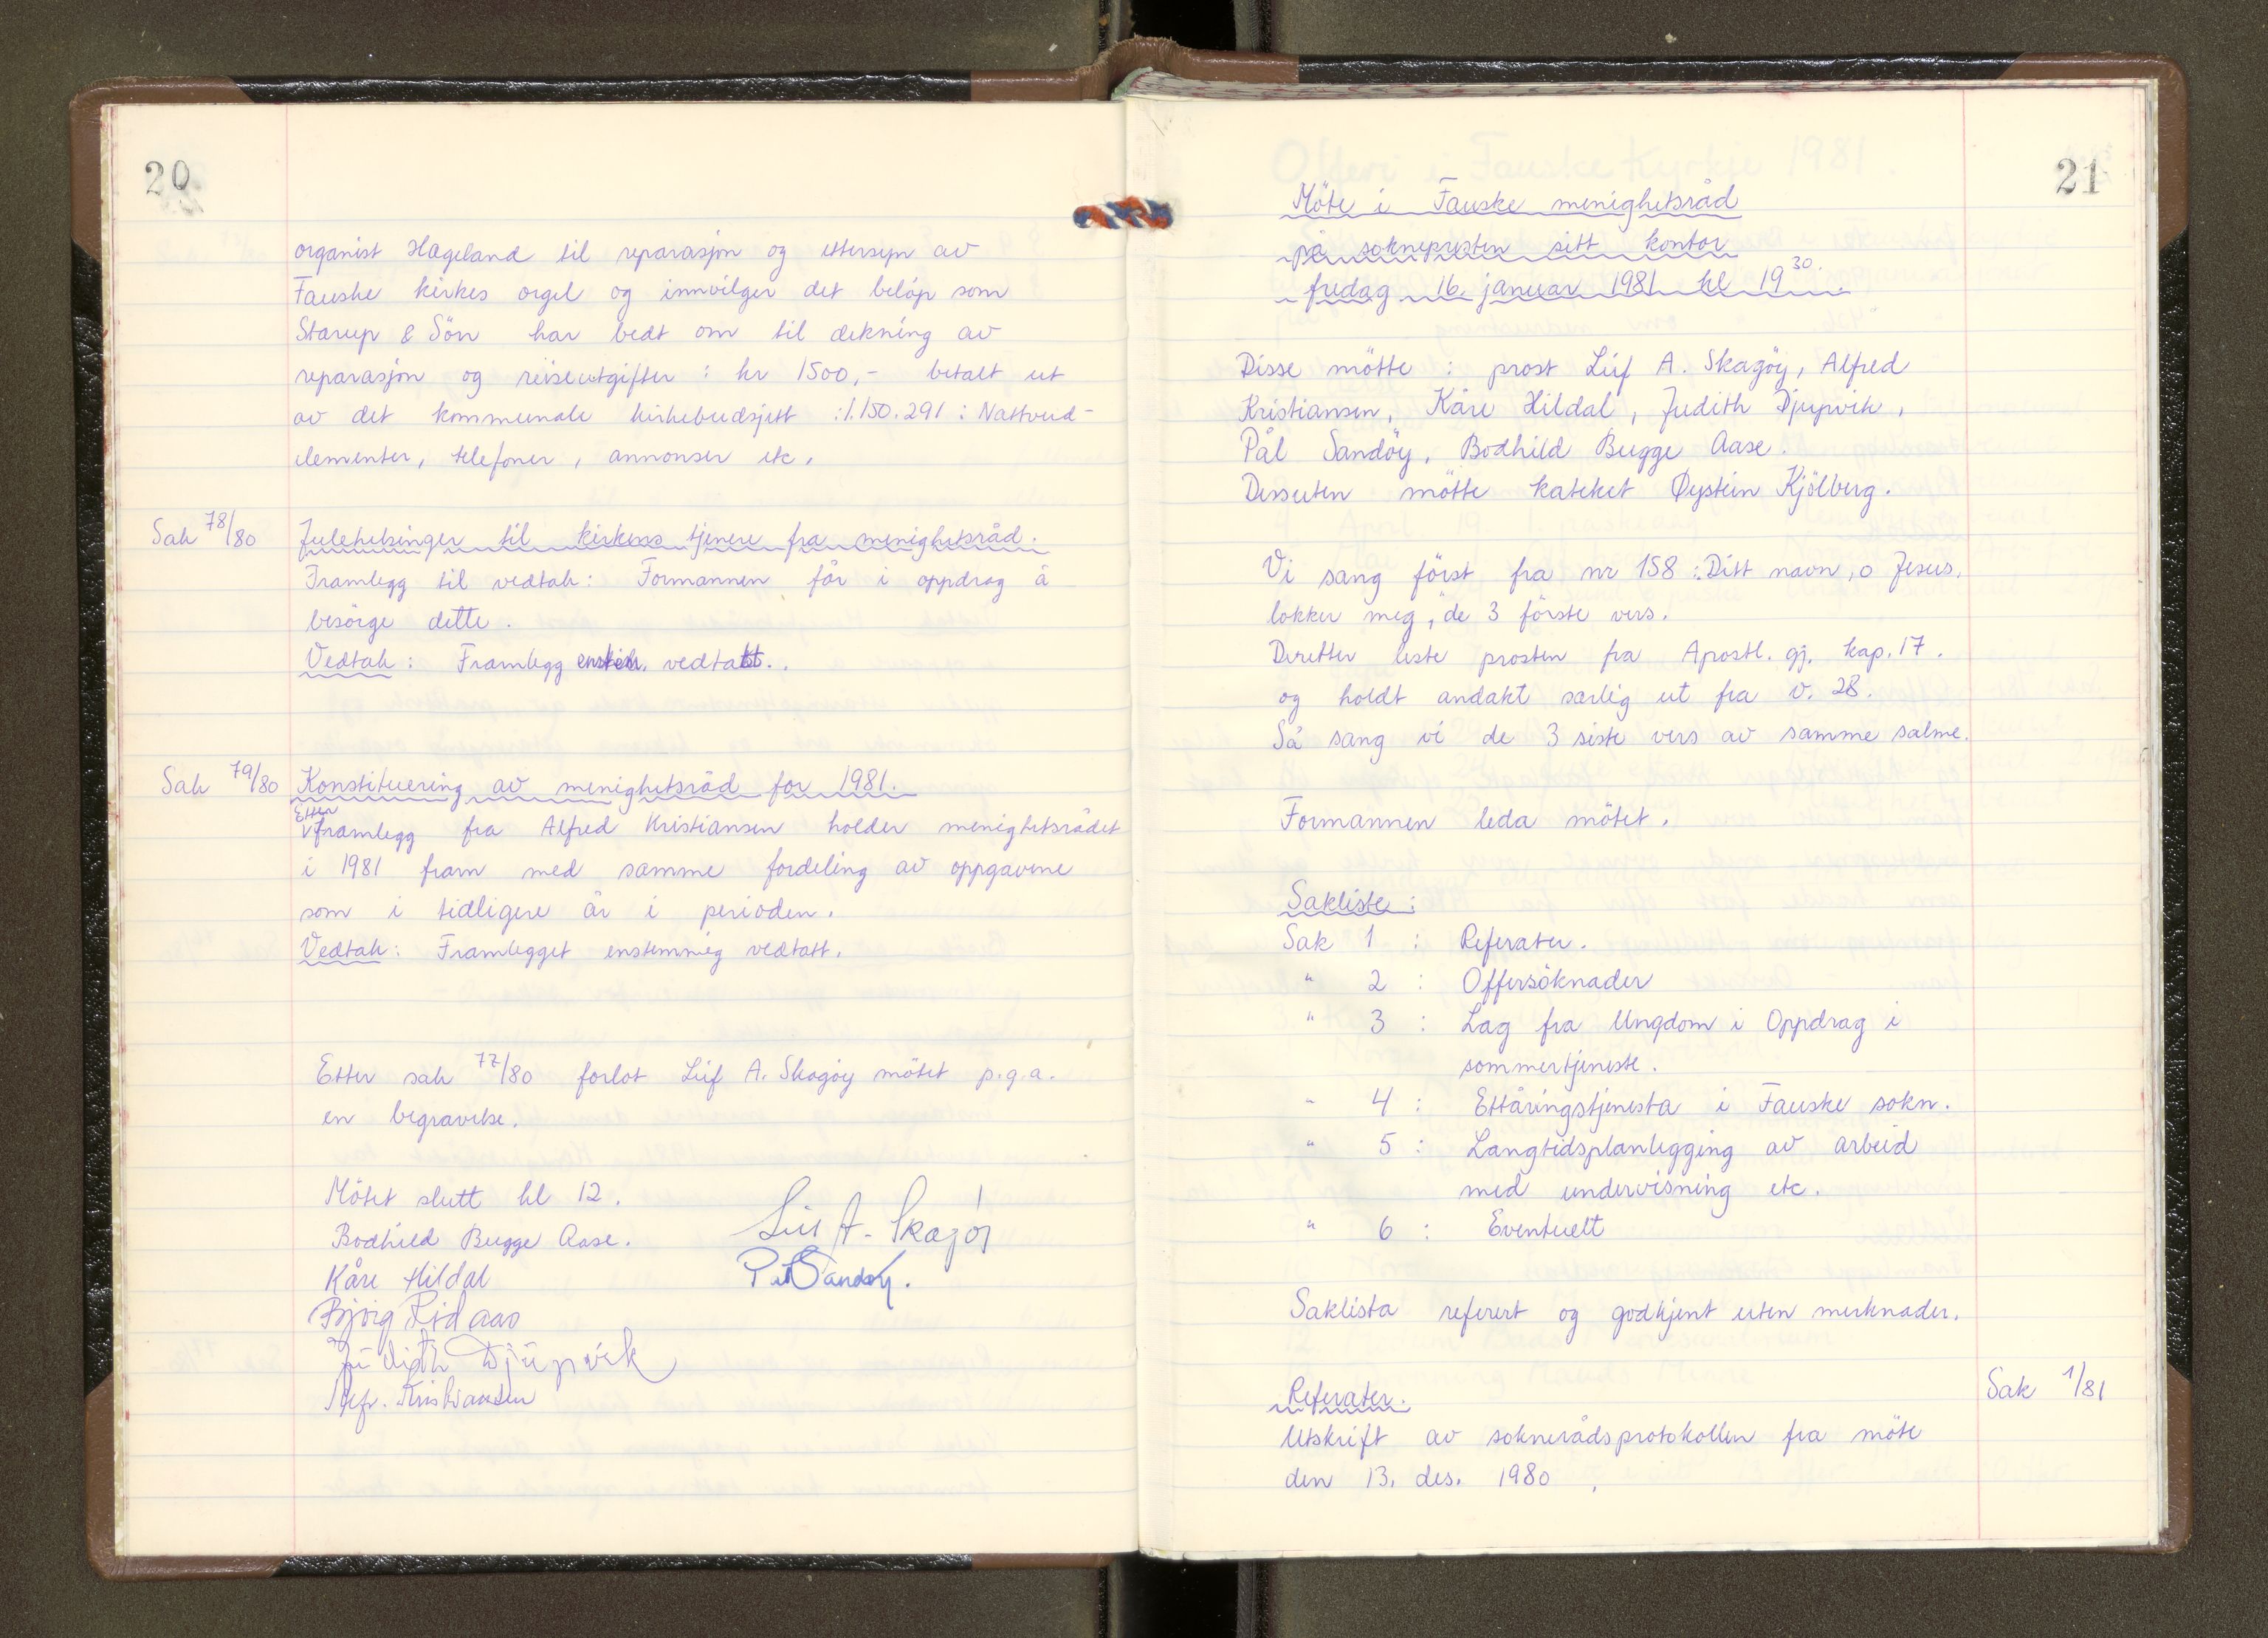 20
organist Hageland til reparasjon og ettersyn av
Fauske kirkes orgel og innvilger det beløp som
Starup & Sön har bedt om til dekning av
reparasjon og reiseutgifter : kr 1500,- betalt ut
av det kommunale kirkebudsjett :1.150.291 : Nattverd-
elementer, telefoner, annonser etc.
Sak 78/80 Julehelsinger til kirkens tjenere fra menighetsråd.
Framlegg til vedtak: Formannen får i oppdrag å
besörge dette.
Vedtak: Framlegg enstem. vedtatt.
Sak 79/80 Konstituering av menighetsråd for 1981.
Etter
framlegg fra Alfred Kristiansen holder menighetsrådet
i 1981 fram med samme fordeling av oppgavene
som i tidligere år i perioden.
Vedtak: Framlegget enstemmig vedtatt.
Etter sak 77/80 forlot Leif A. Skagöy mötet p.g.a.
en begravelse.
Mötet slutt kl 12.
Bodhild Bugge Aase. Leif A. Skagöy
Kåre Hildal Pål Sandöy.
Bjørg
Judith Djupvik
Alfr. Kristiansen
21
Möte i Fauske menighetsråd
på soknepresten sitt kontor
fredag 16. januar 1981 kl 19 30.
Disse mötte : prost Leif A. Skagöy, Alfred
Kristiansen, Kåre Hildal, Judith Djupvik,
Pål Sandöy, Bodhild Bugge Aase.
Dessuten mötte kateket Øystein Kjölberg.
Vi sang först fra nr 158 : "Ditt navn, o Jesus,
lokker meg," de 3 förste vers.
Deretter leste prosten fra Apostl. gj. kap. 17.
og holdt andakt særlig ut fra v. 28.
Så sang vi de 3 siste vers av samme salme.
Formannen leda mötet.
Sakliste :
Sak 1 : Referater.
" 2 : Offersöknader
" 3 : Lag fra Ungdom i Oppdrag i
sommertjeneste.
" 4 : Ettåringstjenesta i Fauske sokn.
" 5 : Langtidsplanlegging av arbeid
med undervisning etc.
" 6 : Eventuelt
Saklista referert og godkjent uten merknader.
Referater. Sak 1/81
Utskrift av soknerådsprotokollen fra möte
den 13. des. 1980.